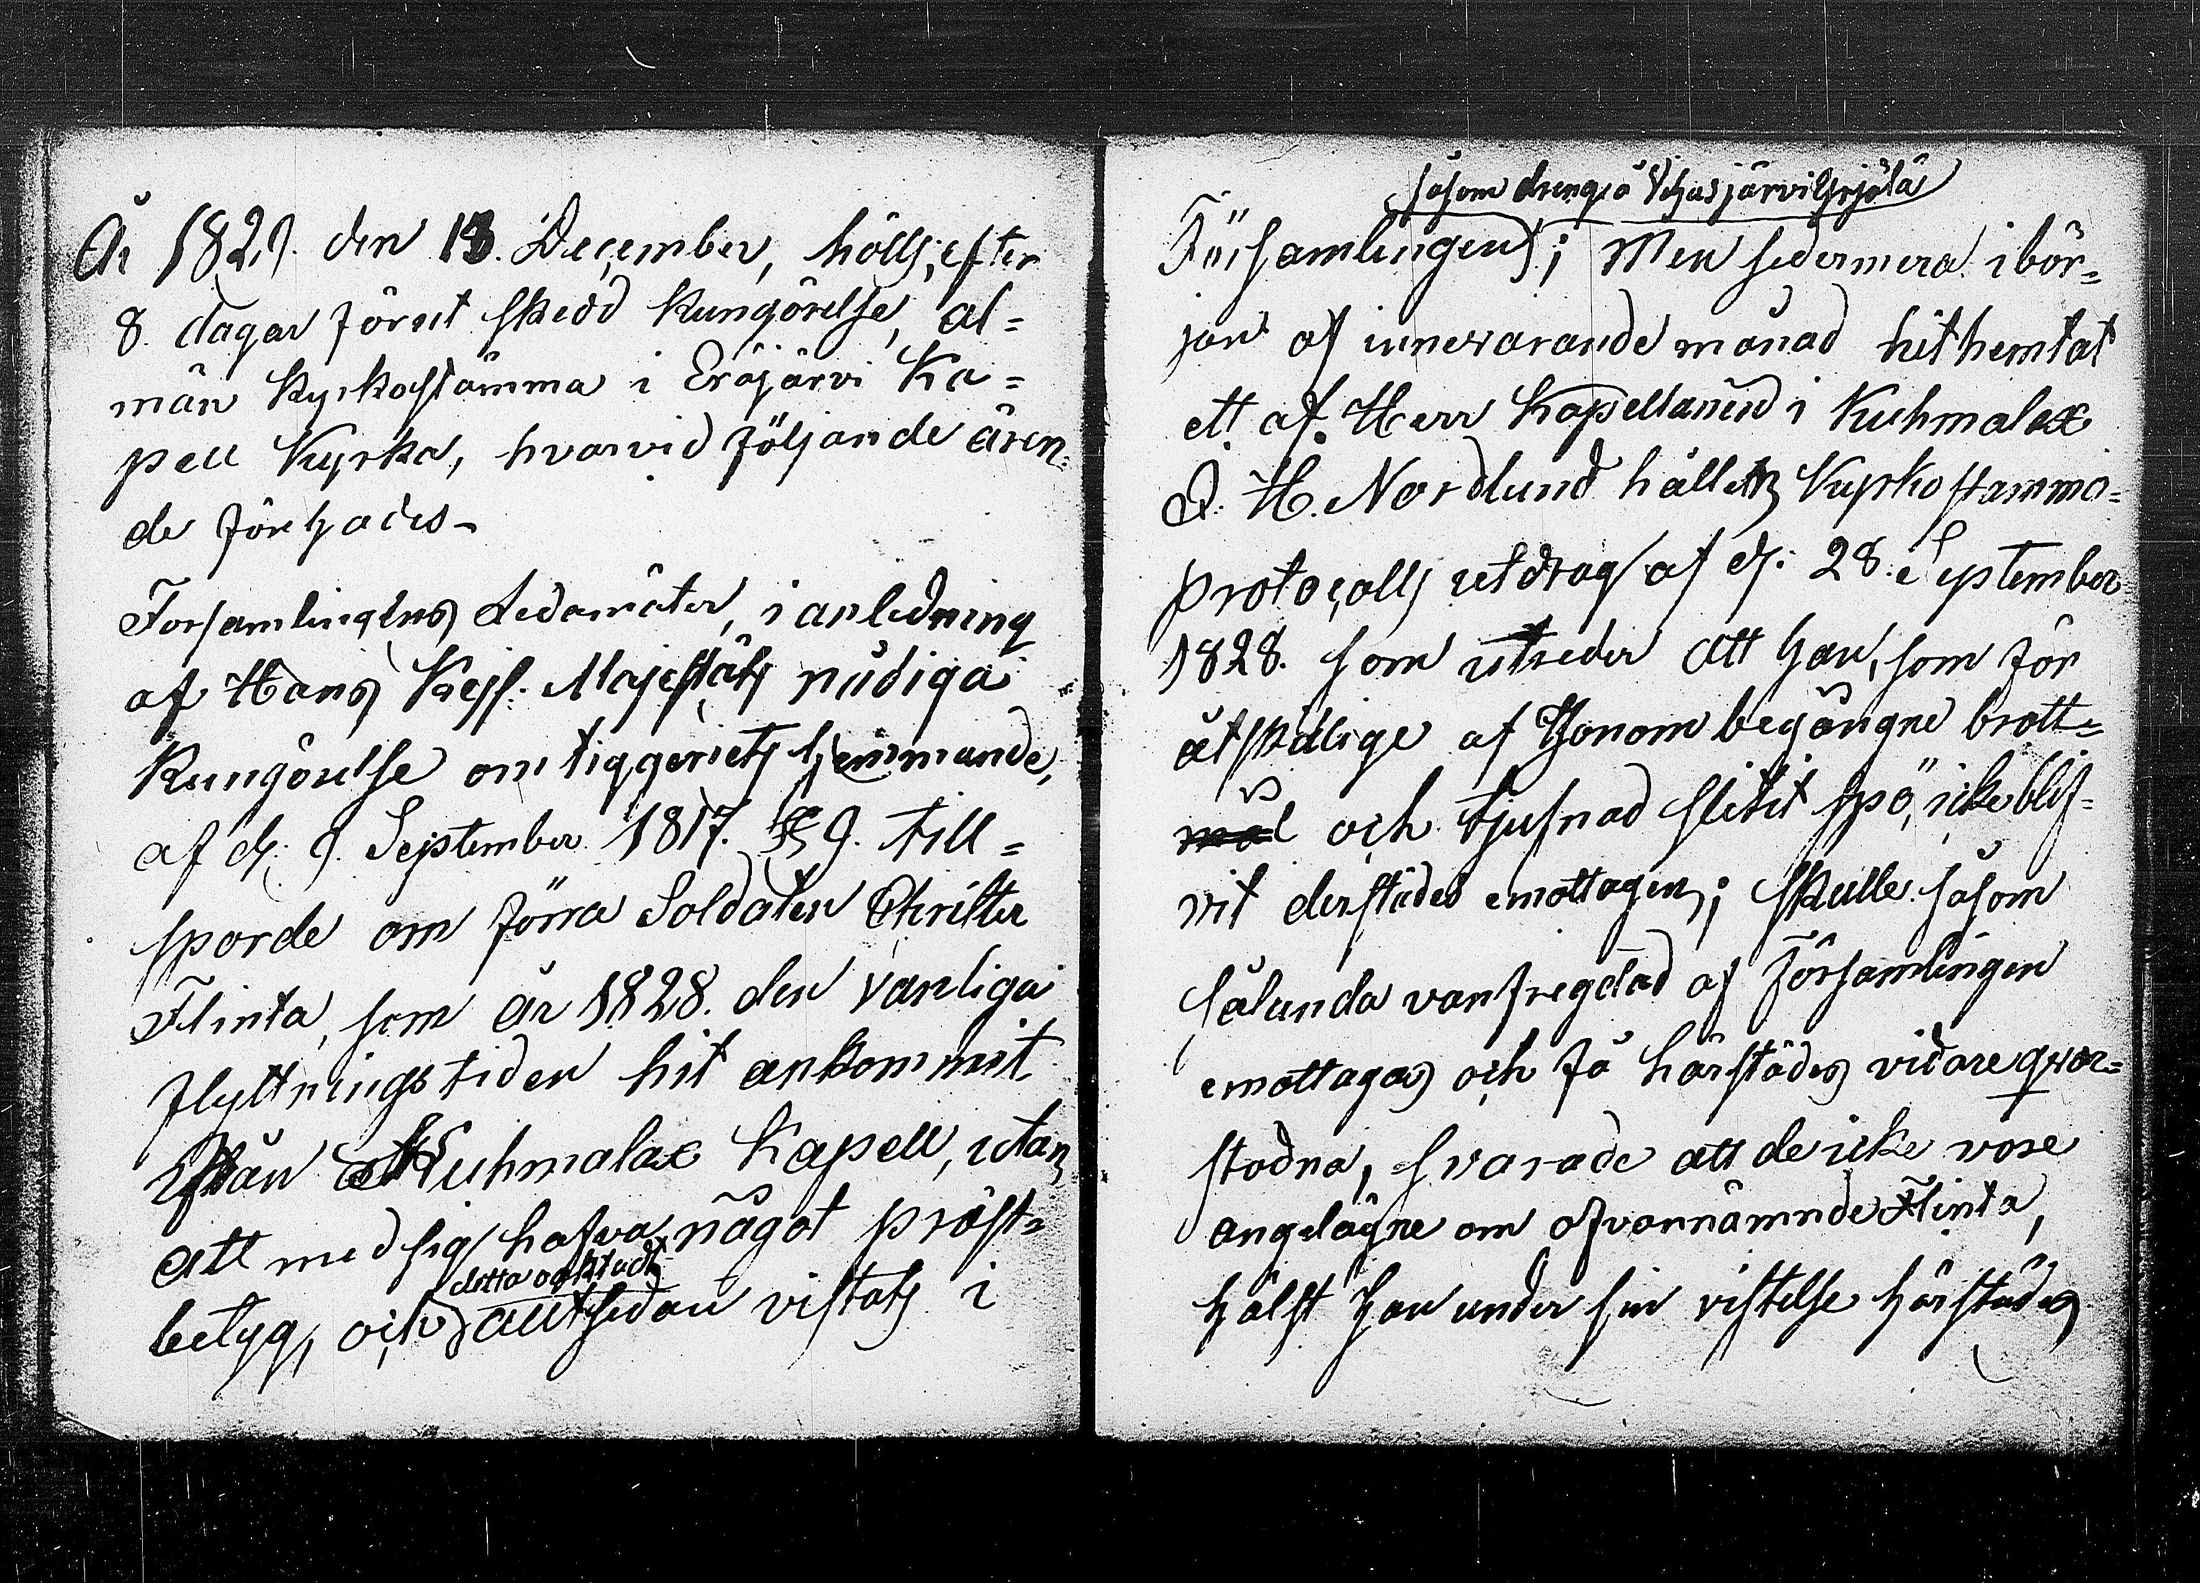 År 1829. den 13. December, hölls, efter
8. dagar förut skedd kungörelse, al=
män kyrkostämma i Eräjärvi Ka=
pell Kyrka, hvarvid följande ären=
de förehades.
Församlingens Ledamöter, i anledning
af Hans Kejs. Majestäts nådiga
Kungörelse om tiggeriets hemmande,
af d. 9. September 1817. § 9. till=
sporde om förra Soldaten Christer
Flinta, som år 1828. den vanliga
flyttningstiden hit ankommit
ifrån Kuhmalax Kapell, utan
att med sig hafva något präst=
detta oaktadt
betyg, och alltsedan vistats i
såsom dreng å
Församlingen; Men sedermera i bör=
jan af innevarande månad hithemtat
ett af Herr Kapellanen i Kuhmalax
H. Nordlund hållen Kyrkostämmo=
protocolls utdrag af d. 28. September
1828. som utreder att han, som för
åtskillige af honom begångne brott=
och tjufnad slitit spö, icke blif=
vit derstädes emottagen; skulle såsom
sålunda vanfregdad af Församlingen
emottagas och få härstädes vidare qvar=
stadna, svarade att de icke vore
angelägne om ofvannämnde Flinta,
hälst han under sin vistelse härstädes